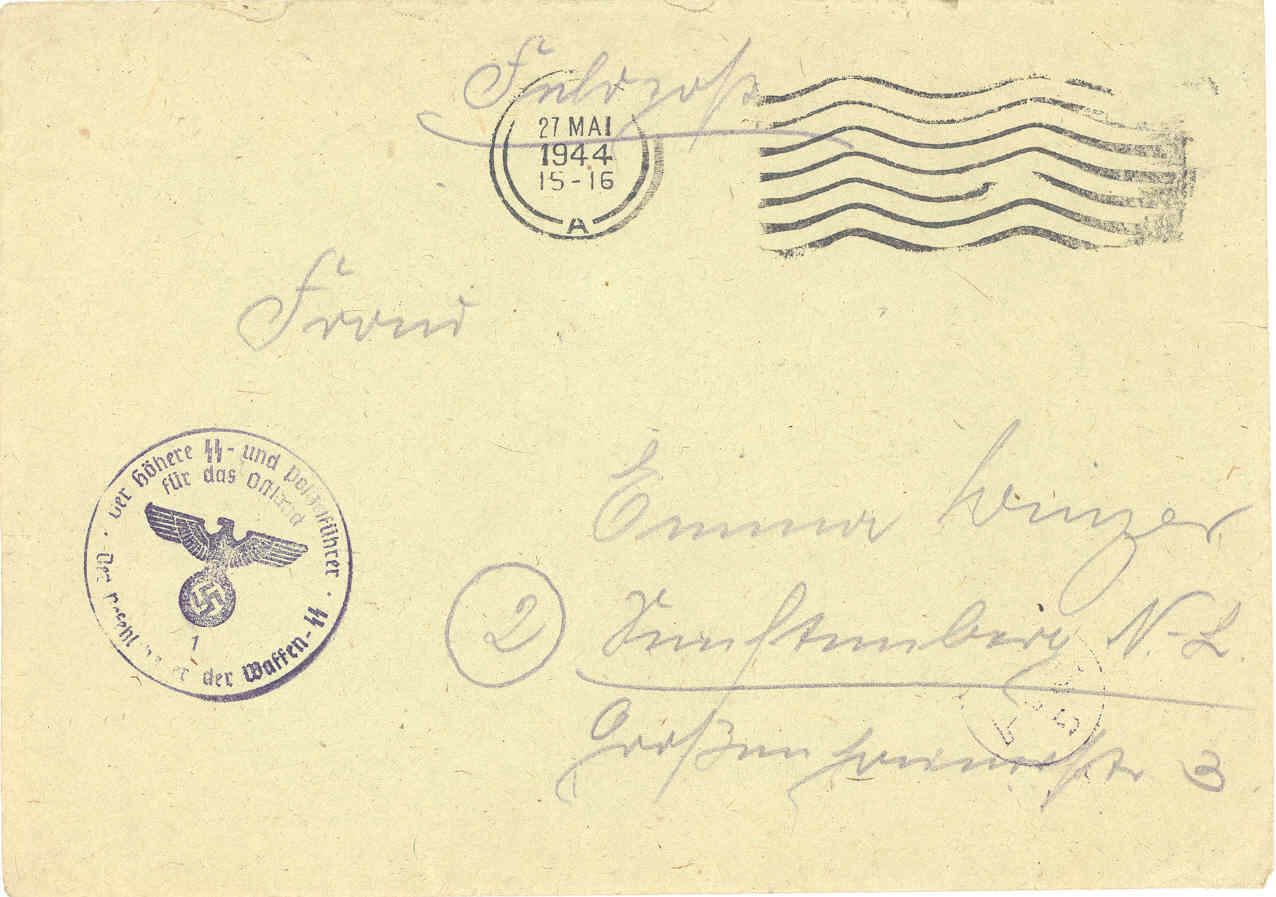 Feldpost
27 MAI
1944
15-16
A
Frau
Der Höhere SS- und Polizeiführer
für das Ostland
Der Befehlshaber der Waffen-SS
1
Emma Winzer
2
Senftenberg N.-L.
Großenhainerstr 3